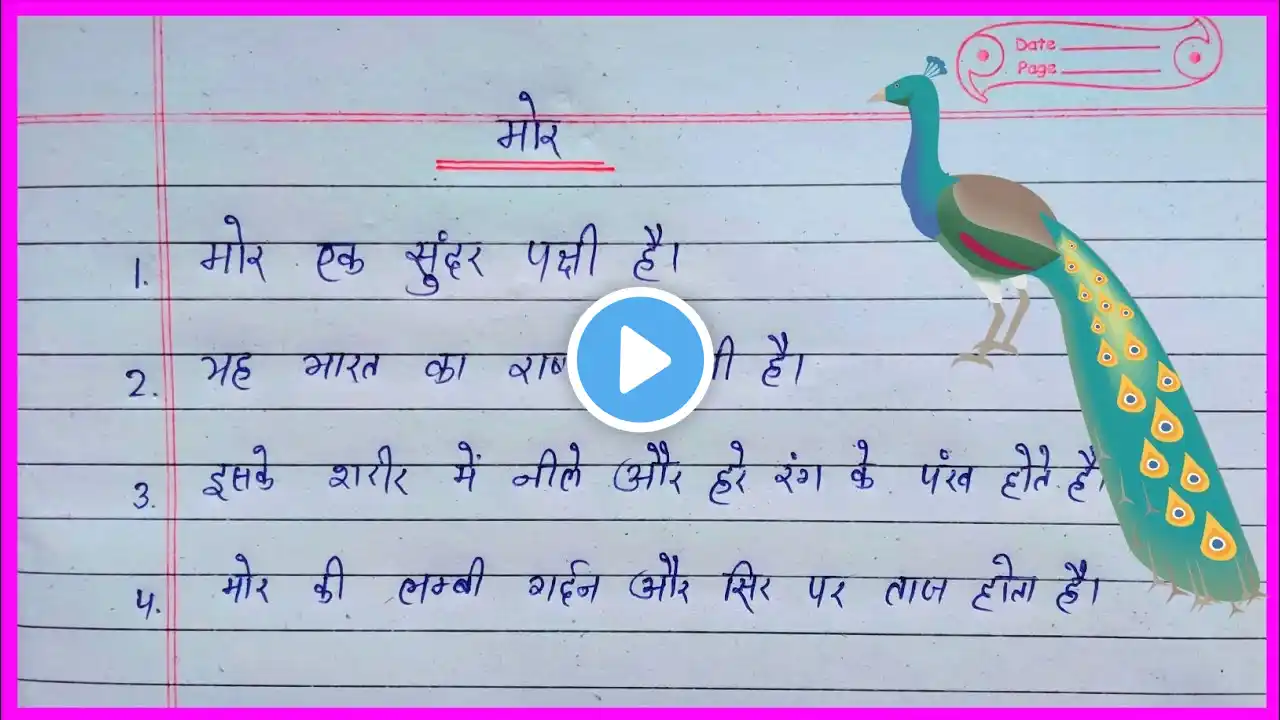 Date
Page
मोर
1. मोर एक सुंदर पक्षी है।
2. यह भारत का है।
3. इसके शरीर में नीले और हरे रंग के पंख होते है।
4. मोर की लम्बी गर्दन और सिर पर ताज होता है।